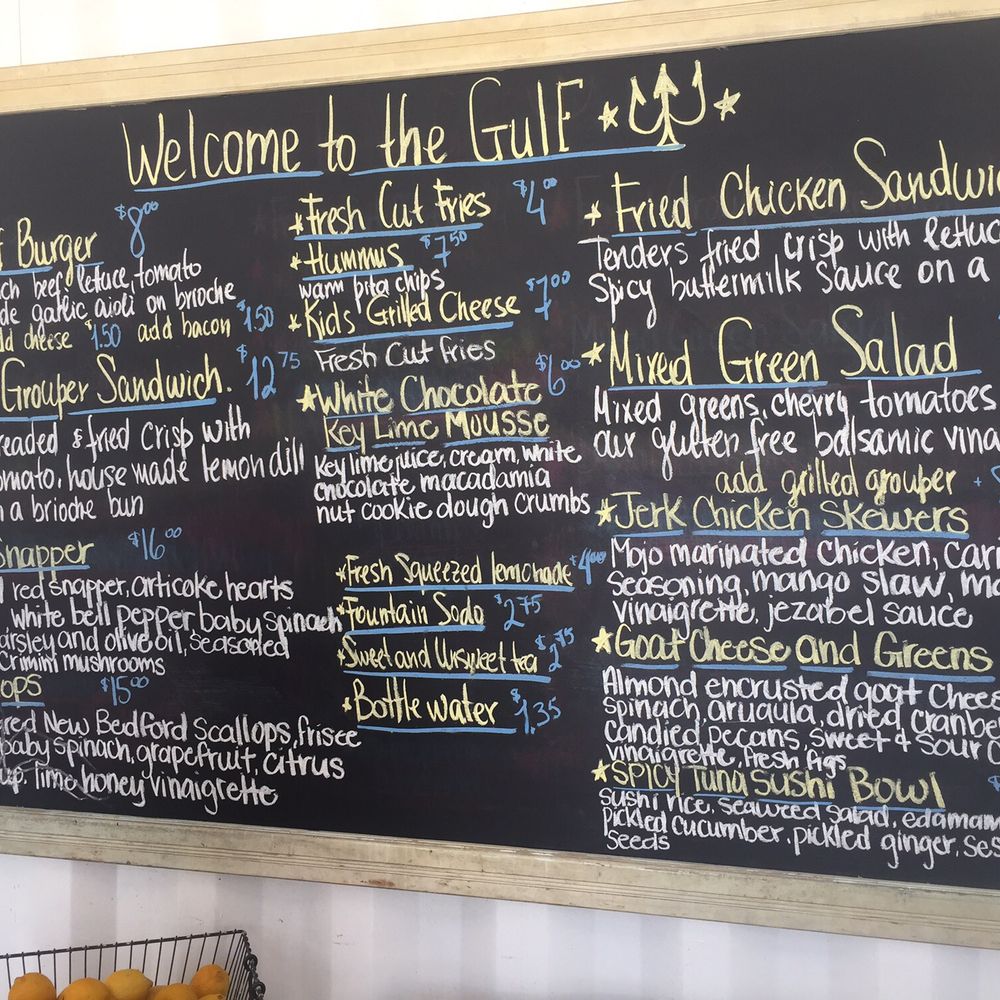 Welcome to the Gulf
Burger $8.00
beef, lettuce, tomato
garlic aioli on brioche
cheese $1.50 add bacon $1.50
Grouper Sandwich. $12.75
fried crisp with
house made lemon dill
a brioche bun
Snapper $16.00
red snapper, articoke hearts
white bell pepper baby spinach
and olive oil, seasoned
crimini mushrooms
$15.00
New Bedford Scallops, frisee
baby spinach, grapefruit, citrus
lime honey vinaigrette
Fresh Cut Fries $4.00
Hummus $7.50
warm pita chips
Kids Grilled Cheese $7.00
Fresh Cut fries
White Chocolate $6.00
Key Lime Mousse
Key lime juice, cream, white
chocolate macadamia
nut cookie dough crumbs
Fresh Squeezed lemonade $4.00
Fountain Soda $2.75
Sweet and Unsweet tea $2.75
Bottle water $1.35
Fried Chicken
Tenders fried crisp with
Spicy buttermilk sauce on a
Mixed Green Salad
Mixed greens, cherry tomatoes
our gluten free balsamic
add grilled grouper +
Jerk Chicken Skewers
Mojo marinated chicken,
seasoning, mango slaw,
vinaigrette, jezabel sauce
Goat Cheese and Greens
Almond encrusted goat
spinach, arugula, dried
candied pecans, sweet & sour
vinaigrette, fresh figs
Spicy Tuna Sushi Bowl
sushi rice, seaweed salad,
pickled cucumber, pickled ginger,
seeds